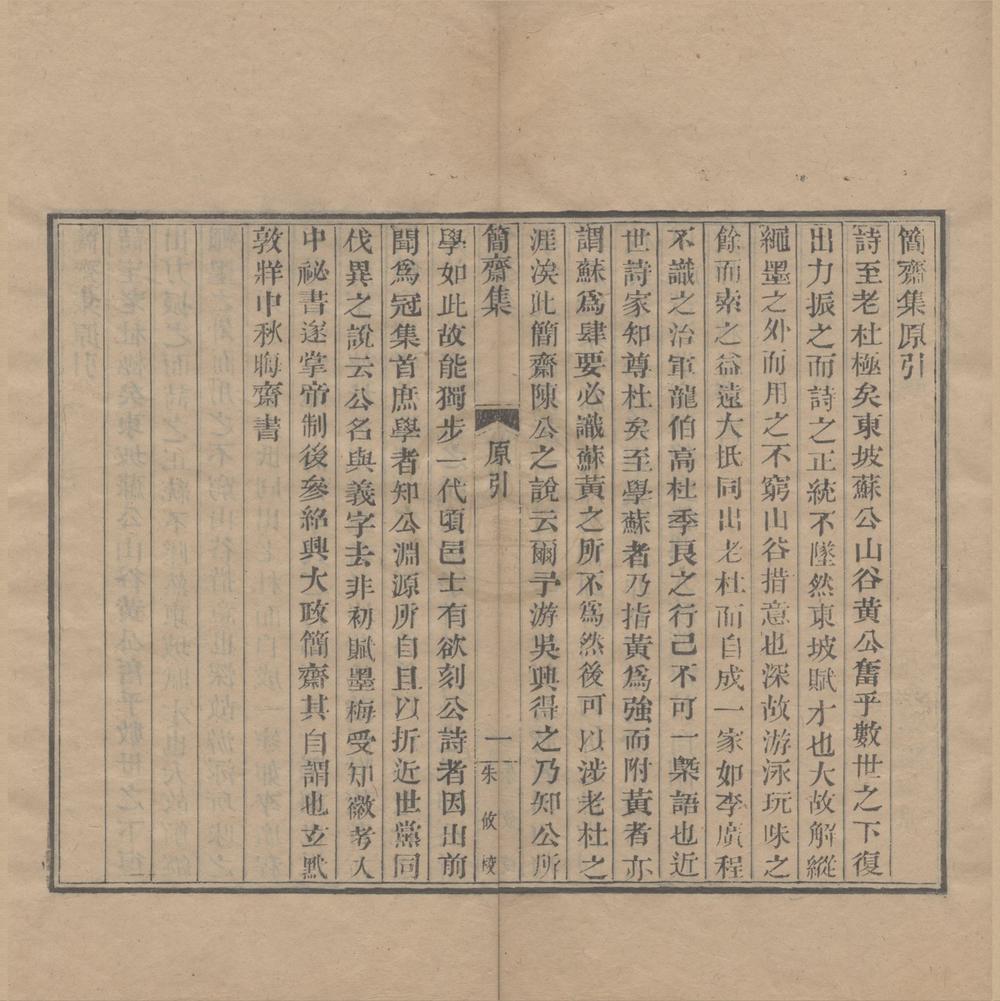 簡齋集原引
詩至老杜極矣東坡蘇公山谷黃公奮乎數世之下復
出力振之而詩之正統不墜然東坡賦才也大故解縱
繩墨之外而用之不窮山谷措意也深故游泳玩味之
餘而索之益遠大抵同出老杜而自成一家如李廣程
不識之治軍龍伯高杜季良之行己不可一槩語也近
世詩家知尊杜矣至學蘇者乃指黃爲強而附黃者亦
謂蘇爲肆要必識蘇黃之所不爲然後可以涉老杜之
涯涘此簡齋陳公之說云爾予游吳興得之乃知公所
簡齋集
原引
一
朱攸校
學如此故能獨步一代頃邑士有欲刻公詩者因出前
聞爲冠集首庶學者知公淵源所自且以折近世黨同
伐異之說云公名與義字去非初賦墨梅受知徽考入
中祕書遂掌帝制後參紹興大政簡齋其自謂也立默
敦牂中秋晦齋書